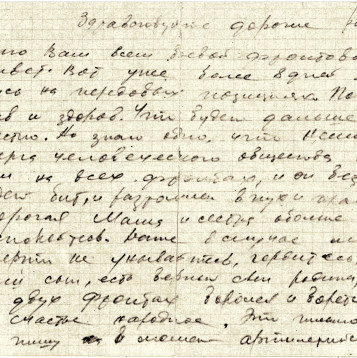 Здравствуйте дорогие
Вам всем боевой фронтовой
привет. Вот уже более 8 дней
на передовых позициях. По
и здоров. Что будет дальше
Но знаю одно, что
человеческого общества
на всех фронтах, и он вез
бит, и разгромлен в пух и прах
дорогая Мама и сестра
в случае
не унывайтесь, гордитесь,
сын, есть верный сын родины,
двух фронтах боролся и борется
счастье народное. Это письмо
пишу в момент артиллерийс